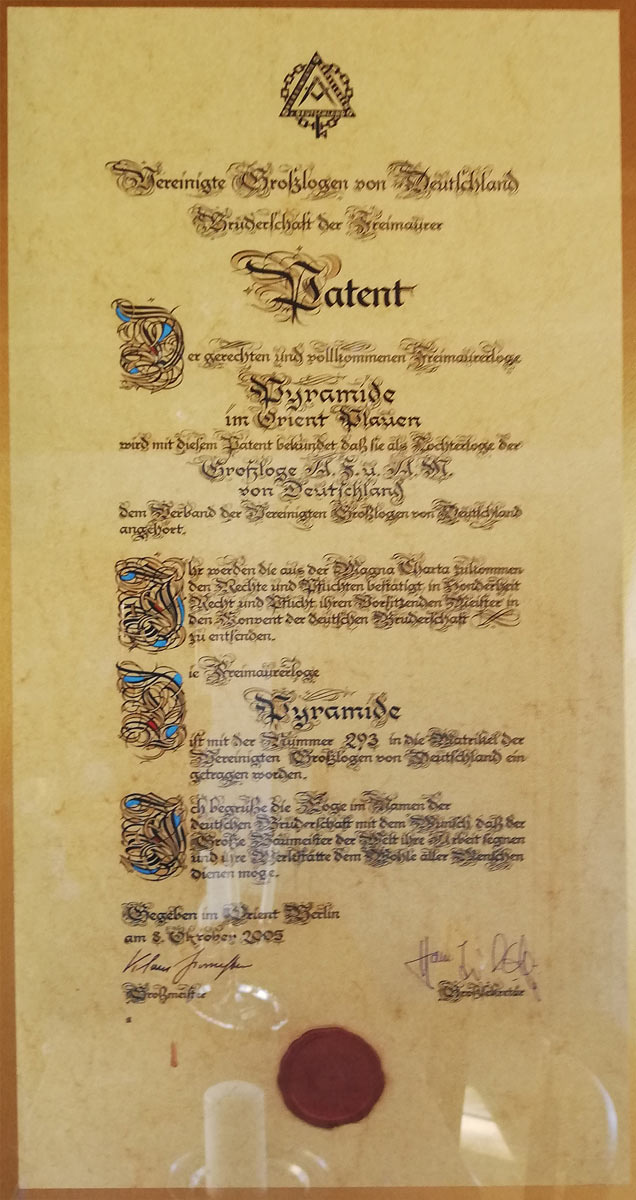 DEUTSCHLAND
Vereinigte Großlogen von Deutschland
Bruderschaft der Freimaurer
Patent
Der gerechten und vollkommenen Freimaurerloge
Pyramide
im Orient Plauen
wird mit diesem Patent bekundet daß sie als Tochterloge der
Großloge A.F.u.A.M.
von Deutschland
dem Verband der Vereinigten Großlogen von Deutschland
angehört.
Ihr werden die aus der Magna Charta zukommen
den Rechte und Pflichten bestätigt in Sonderheit
Recht und Pflicht ihren Vorsitzenden Meister in
den Konvent der deutschen Bruderschaft
zu entsenden.
Die Freimaurerloge
Pyramide
ist mit der Nummer 293 in die Matrikel der
Vereinigten Großlogen von Deutschland ein
getragen worden.
Ich begrüße die Loge im Namen der
deutschen Bruderschaft mit dem Wunsch daß der
Große Baumeister der Welt ihre Arbeit segnen
und ihre Werkstätte dem Wohle aller Menschen
dienen möge.
Gegeben im Orient Berlin
am 8. Oktober 2005
Klaus
Großmeister Großsekretär